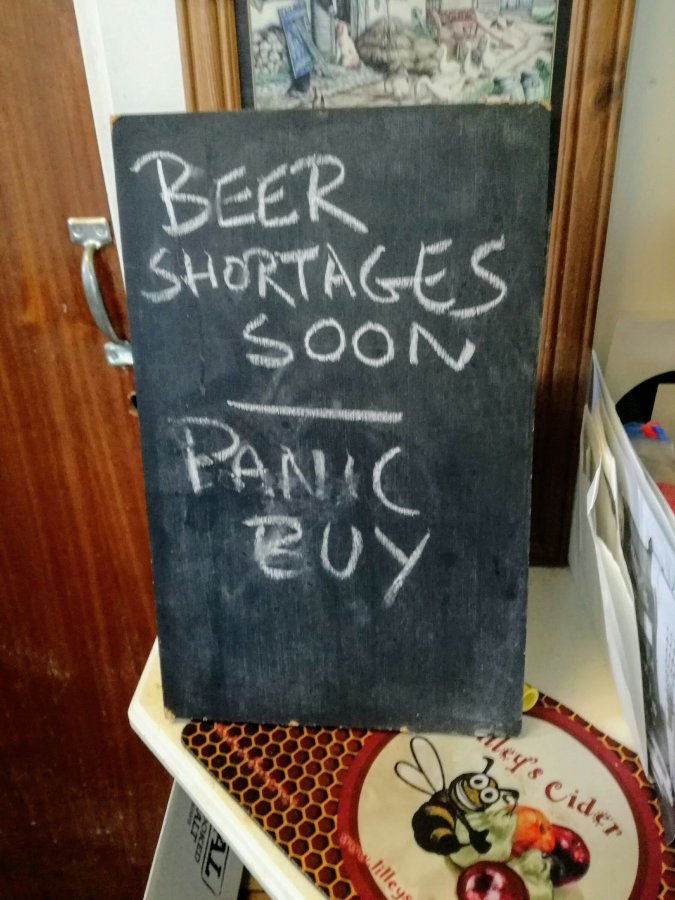 BEER
SHORTAGES
SOON
PANIC
BUY
lley's Cider
www.lilleys